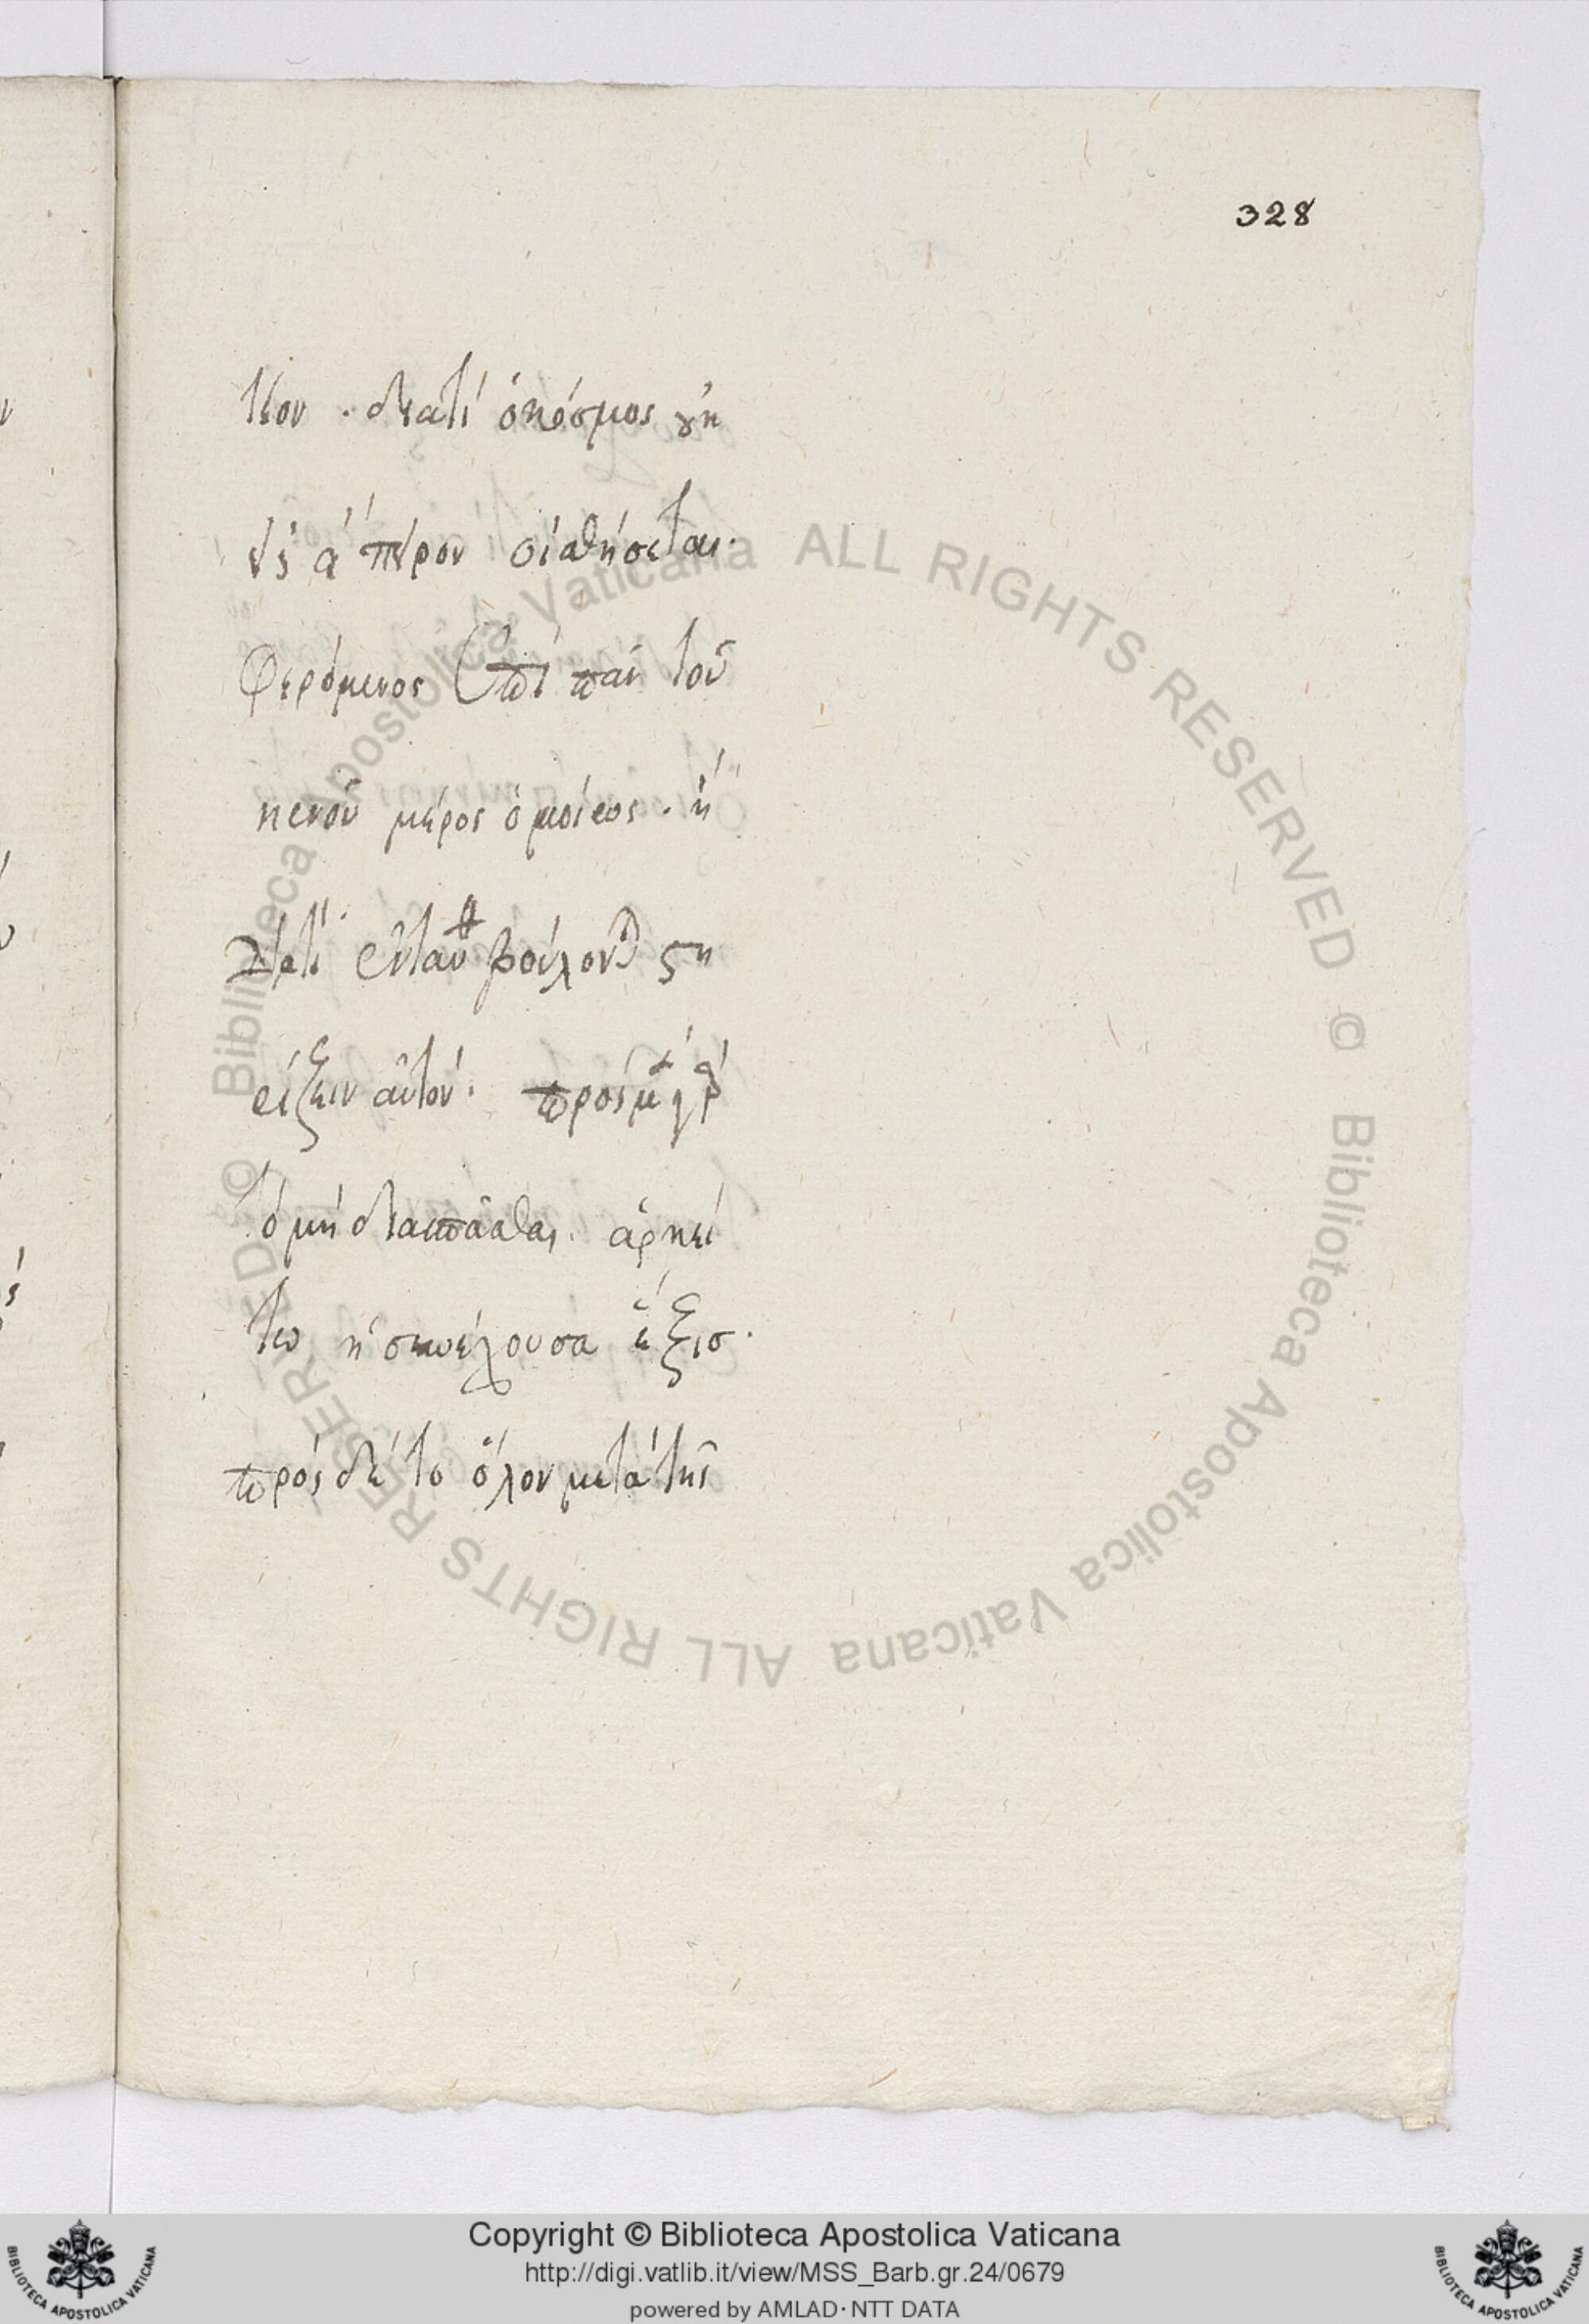 328
τέον. διατί ὁ κόσμος οὐκ
εἰς ἄπειρον οἰσθήσεται.
Φερόμενος ἐπὶ πᾶν τοῦ
κενοῦ μέρος ὁμοίως. ἢ
διατί ἐνταῦθ βούλονται στη
ρίξειν αὐτόν. πρὸς μὲν γὰρ
τὸ μὴ διασπᾶσθαι ἀρκεί
τω ἡ συνέχουσα ἕξισ.
πρὸς δὲ τὸ ὅλον μετὰ τῆς
Biblioteca Apostolica Vaticana ALL RIGHTS RESERVED © Biblioteca Apostolica Vaticana ALL RIGHTS RESERVED ©
Copyright © Biblioteca Apostolica Vaticana
http://digi.vatlib.it/view/MSS_Barb.gr.24/0679
powered by AMLAD·NTT DATA
BIBLIOTECA APOSTOLICA VATICANA
BIBLIOTECA APOSTOLICA VATICANA